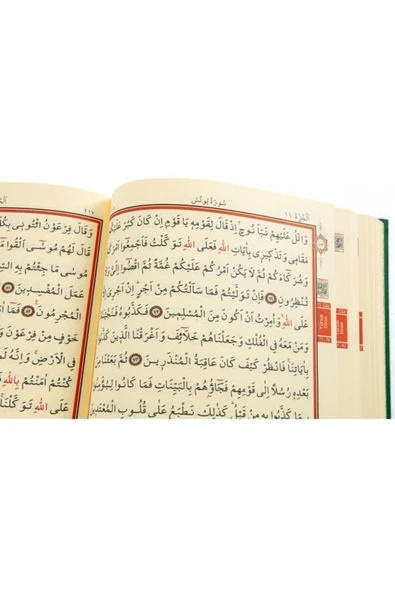 اَلْجُزْءُ ١١
سُورَةُ يُونُسَ
وَاتْلُ عَلَيْهِمْ نَبَاَ نُوحٍ اِذْ قَالَ لِقَوْمِهِ يَا قَوْمِ اِنْ كَانَ كَبُرَ عَلَيْكُمْ
مَقَامِي وَتَذْكِيرِي بِاٰيَاتِ اللّٰهِ فَعَلَى اللّٰهِ تَوَكَّلْتُ فَاَجْمِعُوا اَمْرَكُمْ
وَشُرَكَاءَكُمْ ثُمَّ لَا يَكُنْ اَمْرُكُمْ عَلَيْكُمْ غُمَّةً ثُمَّ اقْضُوا اِلَيَّ وَلَا
تُنْظِرُونِ ٧١ فَاِنْ تَوَلَّيْتُمْ فَمَا سَاَلْتُكُمْ مِنْ اَجْرٍ اِنْ اَجْرِيَ اِلَّا
عَلَى اللّٰهِ وَاُمِرْتُ اَنْ اَكُونَ مِنَ الْمُسْلِمِينَ ٧٢ فَكَذَّبُوهُ فَنَجَّيْنَاهُ
وَمَنْ مَعَهُ فِي الْفُلْكِ وَجَعَلْنَاهُمْ خَلَائِفَ وَاَغْرَقْنَا الَّذِينَ كَذَّبُوا
بِاٰيَاتِنَا فَانْظُرْ كَيْفَ كَانَ عَاقِبَةُ الْمُنْذَرِينَ ٧٣ ثُمَّ بَعَثْنَا مِنْ
بَعْدِهِ رُسُلًا اِلٰى قَوْمِهِمْ فَجَاؤُهُمْ بِالْبَيِّنَاتِ فَمَا كَانُوا لِيُؤْمِنُوا
بِمَا كَذَّبُوا بِهِ مِنْ قَبْلُ كَذٰلِكَ نَطْبَعُ عَلٰى قُلُوبِ الْمُعْتَدِينَ
٢١٧
وَقَالَ فِرْعَوْنُ ائْتُونِي بِكُلِّ
قَالَ لَهُمْ مُوسٰى اَلْقُوا مَا
مُوسٰى مَا جِئْتُمْ بِهِ
عَمَلَ الْمُفْسِدِينَ ٨١
الْمُجْرِمُونَ ٨٢
خَوْفٍ مِنْ فِرْعَوْنَ
فِي الْاَرْضِ وَاِنَّهُ
كُنْتُمْ اٰمَنْتُمْ بِاللّٰهِ
عَلَى اللّٰهِ تَوَكَّلْنَا